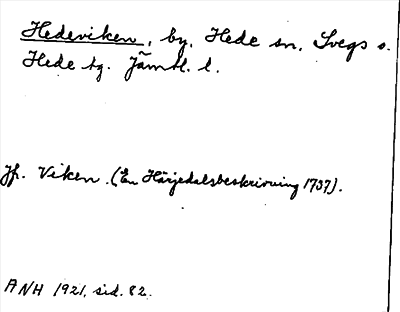 Hedeviken, by, Hede sn, Svegs s.
Hede tg. Jämtl. l.
Jfr. Viken. (En Härjedalsbeskrivning 1737).
ANH 1921, sid. 82.